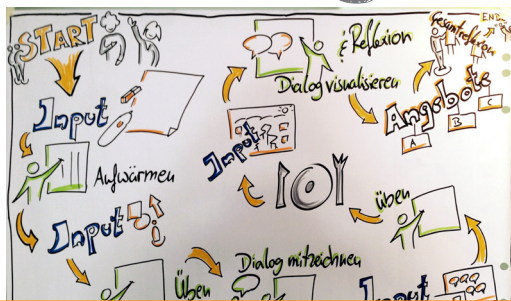 START
Input
Aufwärmen
Input
Üben
Dialog mitzeichnen
Input
üben
Input
Dialog visualisieren
& Reflexion
Angebote
A
B
C
Gesamtreflexion